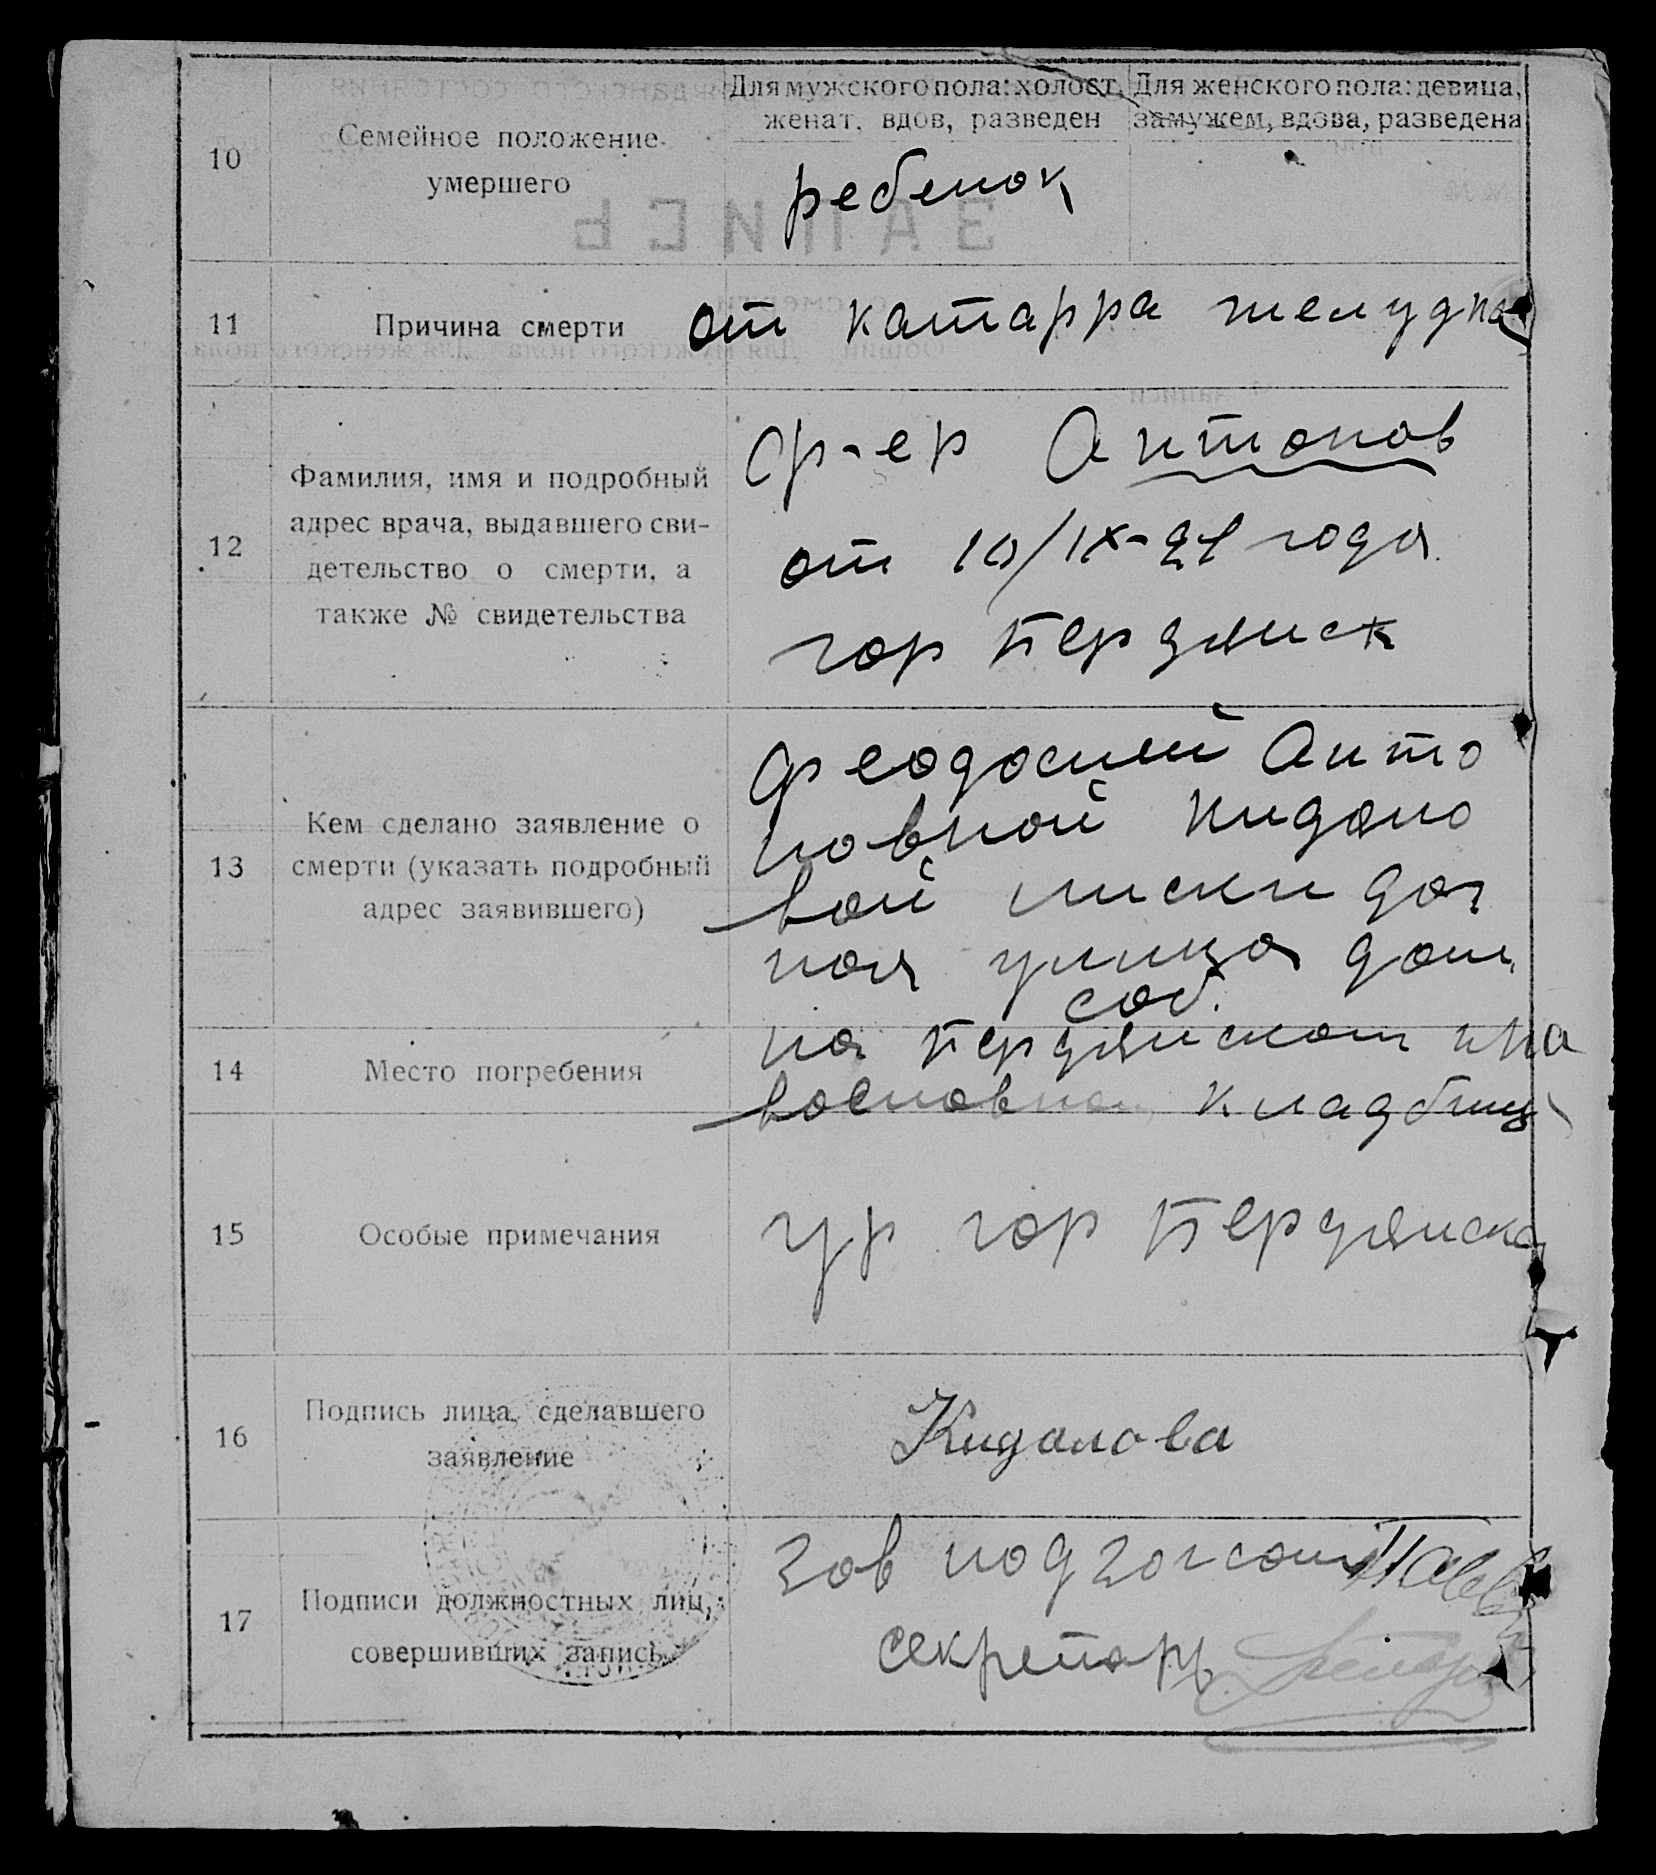 Для мужского пола: холост, женат, вдов, разведен
Для женского пола: девица, замужем, вдова, разведена
10
Семейное положение
умершего
ребенок
11
Причина смерти
от катарра желудка
12
Фамилия, имя и подробный
адрес врача, выдавшего сви-
детельство о смерти, а
также № свидетельства
ф-ер Антонов
от 10/IX-21 года
гор Бердянск
13
Кем сделано заявление о
смерти (указать подробный
адрес заявившего)
Феодосией Анто
новной Кидало
вой лиски
ная улица дом
соб.
14
Место погребения
на Бердянском
кладбищ
15
Особые примечания
гр гор Бердянска
16
Подпись лица, сделавшего
заявление
Кидалова
17
Подписи должностных лиц,
совершивших запись
Зав подзагсом
секретарь